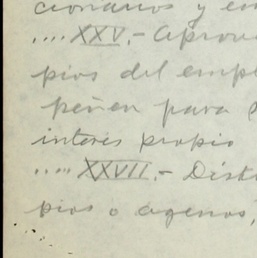 cionarios y em
.... XXV.- Aprove
pios del empl
peñen para
interés propio
..... XXVII.- Dist
pios o agenos,